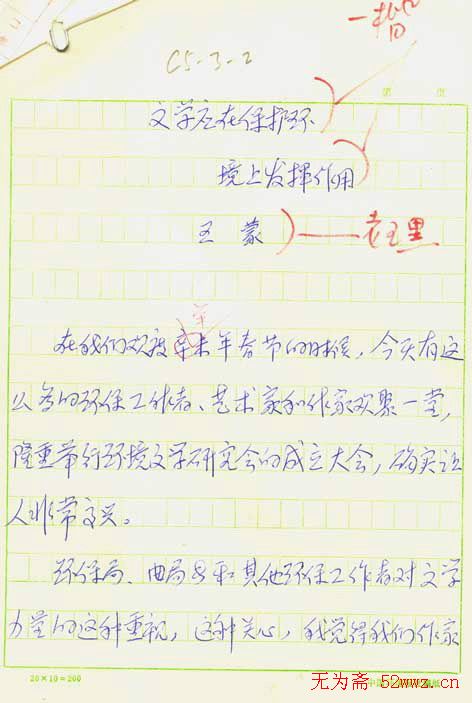 C5-3-2
文学应在保护环
境上发挥作用
王 蒙
老五黑
在我们欢度辛未年春节的时候，今天有这
么多的环保工作者、艺术家和作家欢聚一堂，
隆重举行环境文学研究会的成立大会，确实让
人非常高兴。
环保局、曲局长和其他环保工作者对文学
力量的这种重视，这种关心，我觉得我们作家
20×10=200
无为斋 52wwz.cn